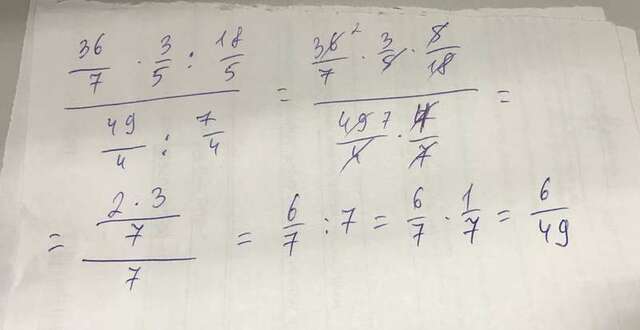 36/7 · 3/5 : 18/5 / 49/4 : 7/4 = 36² / 7 · 3/5 · 5/18 / 49 7 / 4 · 4/7 =
= 2 · 3 / 7 / 7 = 6/7 : 7 = 6/7 · 1/7 = 6/49